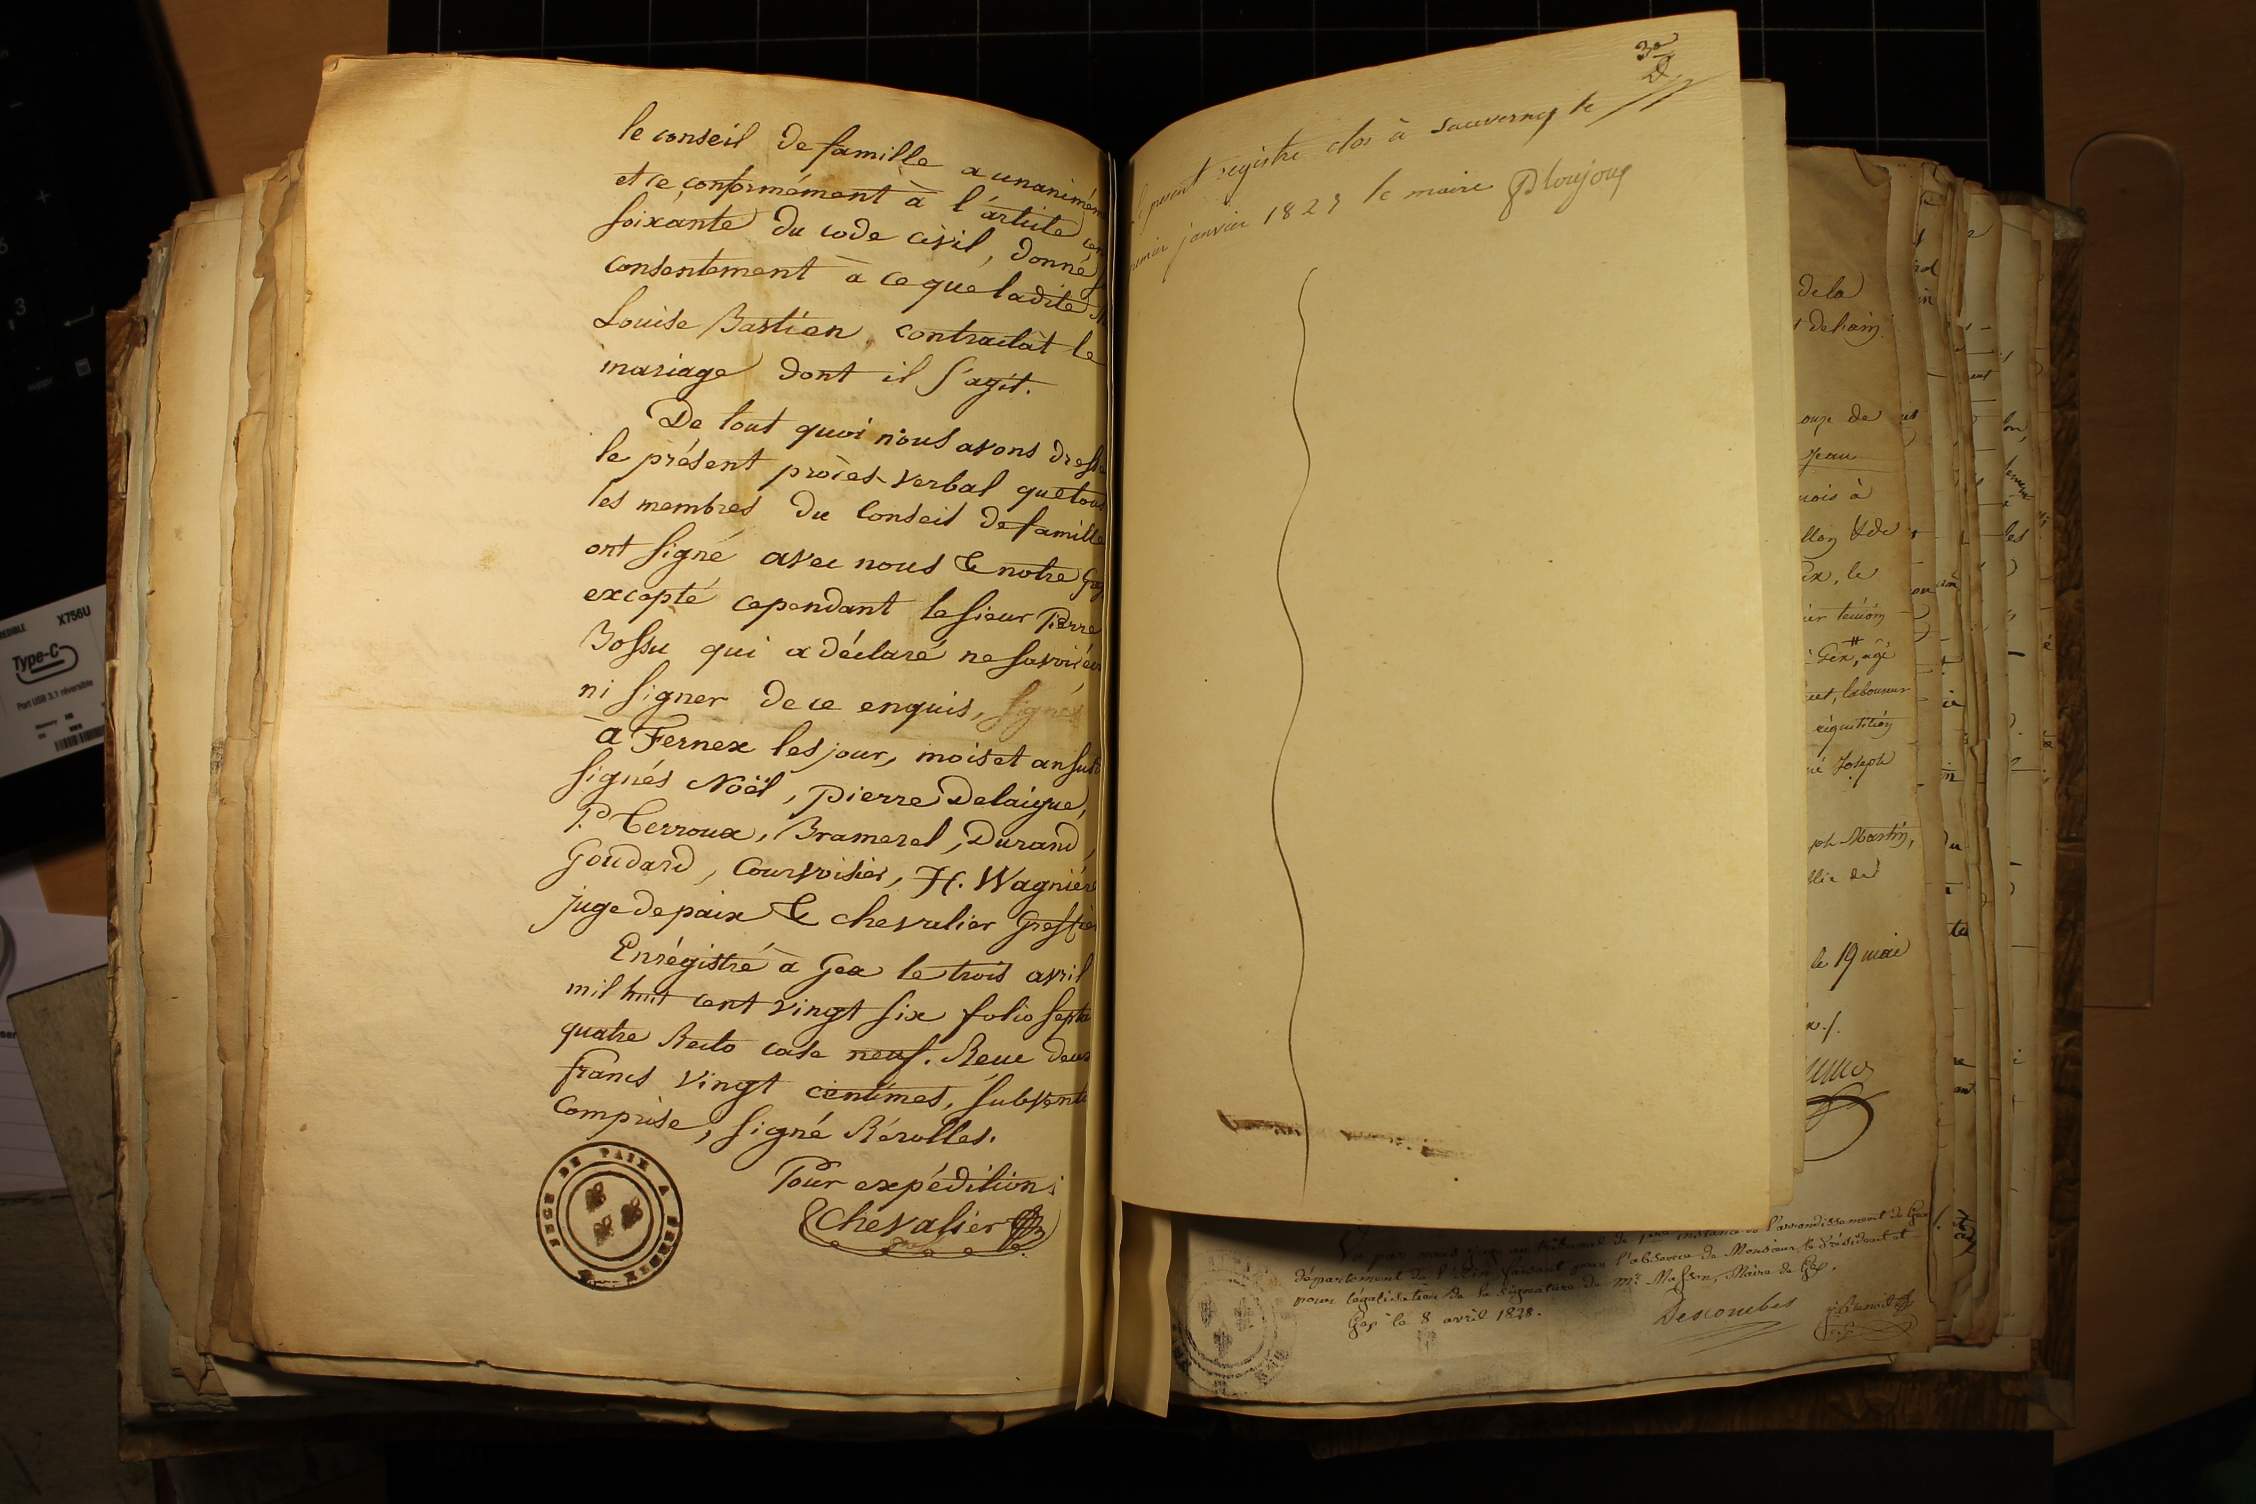 le conseil de famille a unanimém
et ce conformément à l'article cen
soixante du code civil, donné
consentement à ce que ladite
Louise Bastian, contractât le
mariage dont il s'agit.
De tout quoi nous avons dressé
le présent procès-verbal que tous
les membres du Conseil de famille
ont signé avec nous & notre Gref
excepté cependant le sieur Pierre
Bossu qui a déclaré ne savoir écr
ni signer de ce enquis, signés
à Fernex les jour, mois et an susd
signés Noël, pierre Delaigue,
P. Terroux, Bramerel, Durand,
Goudard, Courvoisier, H. Wagnière
juge de paix & Chevalier Greffier
Enrégistré à Gex le trois avril
mil huit cent vingt six folio septa
quatre Recto case neuf. Reçu deux
francs vingt centimes, subvent
Comprise, signé Rérolles.
Pour expédition
Chevalier
JUGE DE PAIX
3e
le présent registre clos à Sauverny le
premier janvier 1829 le maire
de la
de hain
onze de
Jean
mois à
& de
Gex, le
témoin
Gex, agé
laboureur
réquisition
Joseph
Martin,
le 19 mai
Vu par nous juge au tribunal de 1ère instance de l'arrondissement de Gex
département de l'Ain faisant pour l'absence de Monsieur le Président et
pour légalisation de la signature de Mr. Masson, Maire de Gex.
Gex le 8 avril 1828.
Descombes
X756U
Type-C
Port USB 3.1 réversible
3